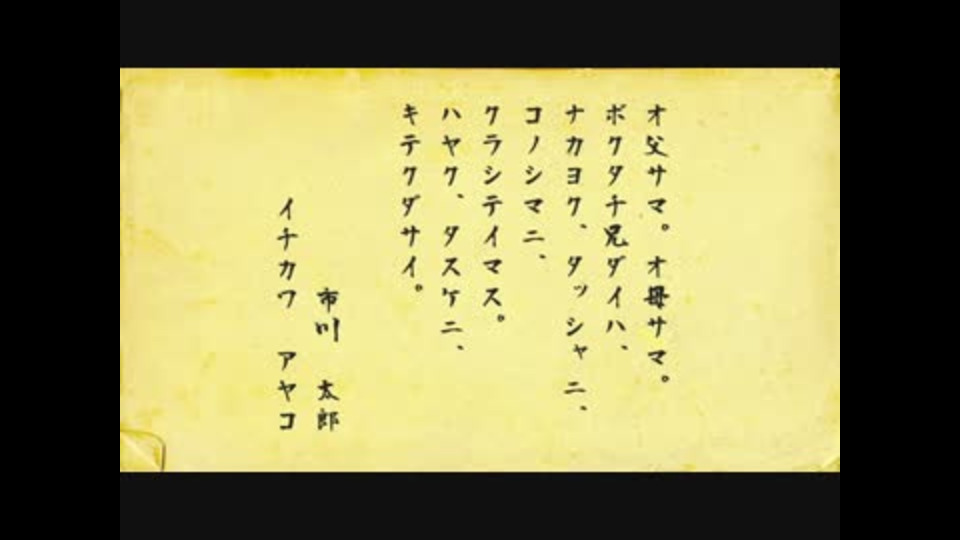 オ父サマ。オ母サマ。
ボクタチ兄ダイハ、
ナカヨク、タッシャニ、
コノシマニ、
クラシテイマス。
ハヤク、タスケニ、
キテクダサイ。
市川 太郎
イチカワ アヤコ